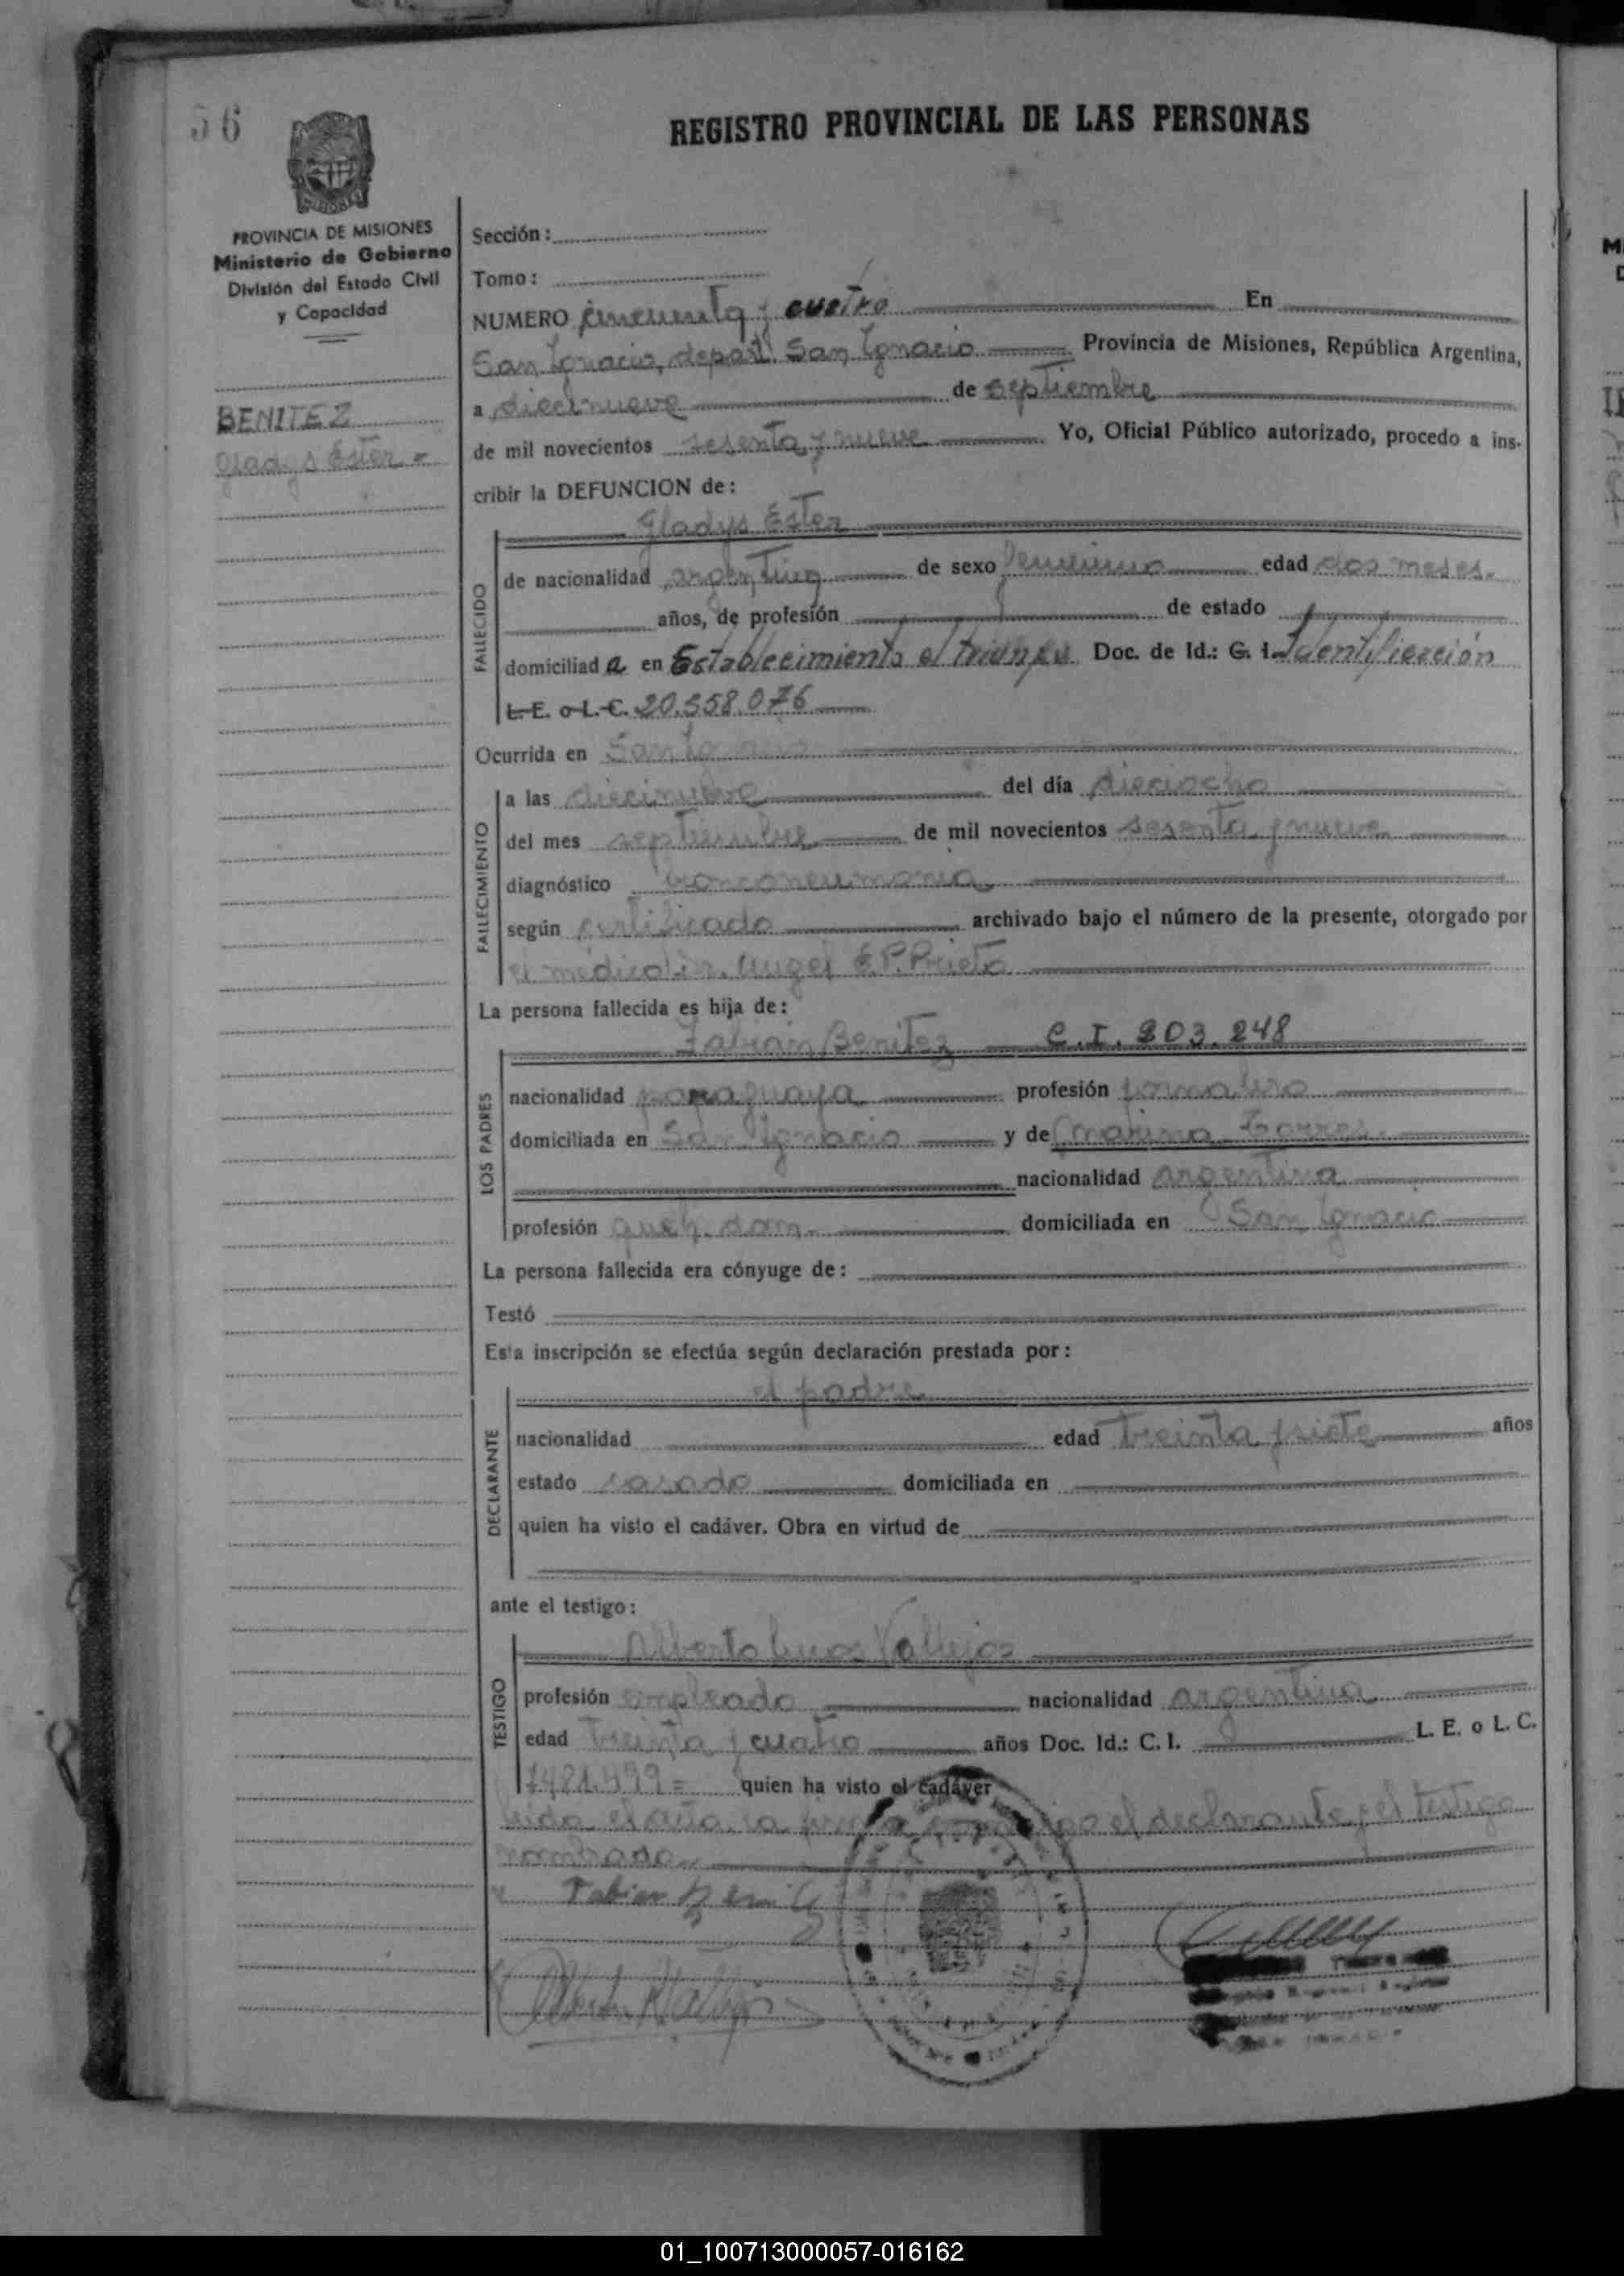 56
REGISTRO PROVINCIAL DE LAS PERSONAS
PROVINCIA DE MISIONES
Ministerio de Gobierno
División del Estado Civil
y Capacidad
BENITEZ
Gladys Ester =
Sección:
Tomo:
NUMERO cincuenta y cuatro En
San Ignacio, depart. San Ignacio Provincia de Misiones, República Argentina,
a diecinueve de septiembre
de mil novecientos sesenta y nueve Yo, Oficial Público autorizado, procedo a ins-
cribir la DEFUNCION de:
Gladys Ester
FALLECIDO
de nacionalidad argentina de sexo femenino edad dos meses.
años, de profesión de estado
domiciliad a en Establecimiento el triunfo Doc. de Id.: C. I. Identificación
L.E. o L.C. 20.558.076
Ocurrida en San Ignacio
FALLECIMIENTO
a las diecinueve del día dieciocho
del mes septiembre de mil novecientos sesenta y nueve
diagnóstico bronconeumonia
según certificado archivado bajo el número de la presente, otorgado por
el médico Dr. Angel E. P. Prieto
La persona fallecida es hija de:
Fabián Benitez C.I. 203.248
LOS PADRES
nacionalidad paraguaya profesión jornalero
domiciliada en San Ignacio y de Marina Torres
nacionalidad argentina
profesión queh. dom. domiciliada en San Ignacio
La persona fallecida era cónyuge de:
Testó
Esta inscripción se efectúa según declaración prestada por:
el padre
DECLARANTE
nacionalidad edad treinta y siete años
estado casado domiciliada en
quien ha visto el cadáver. Obra en virtud de
ante el testigo:
Alberto Vallejos
TESTIGO
profesión empleado nacionalidad argentina
edad treinta y cuatro años Doc. Id.: C. I. L. E. o L. C.
7481.499= quien ha visto el cadáver
leida el acta la el declarante y el testigo
nombrado
Fabian Beni
01_100713000057-016162